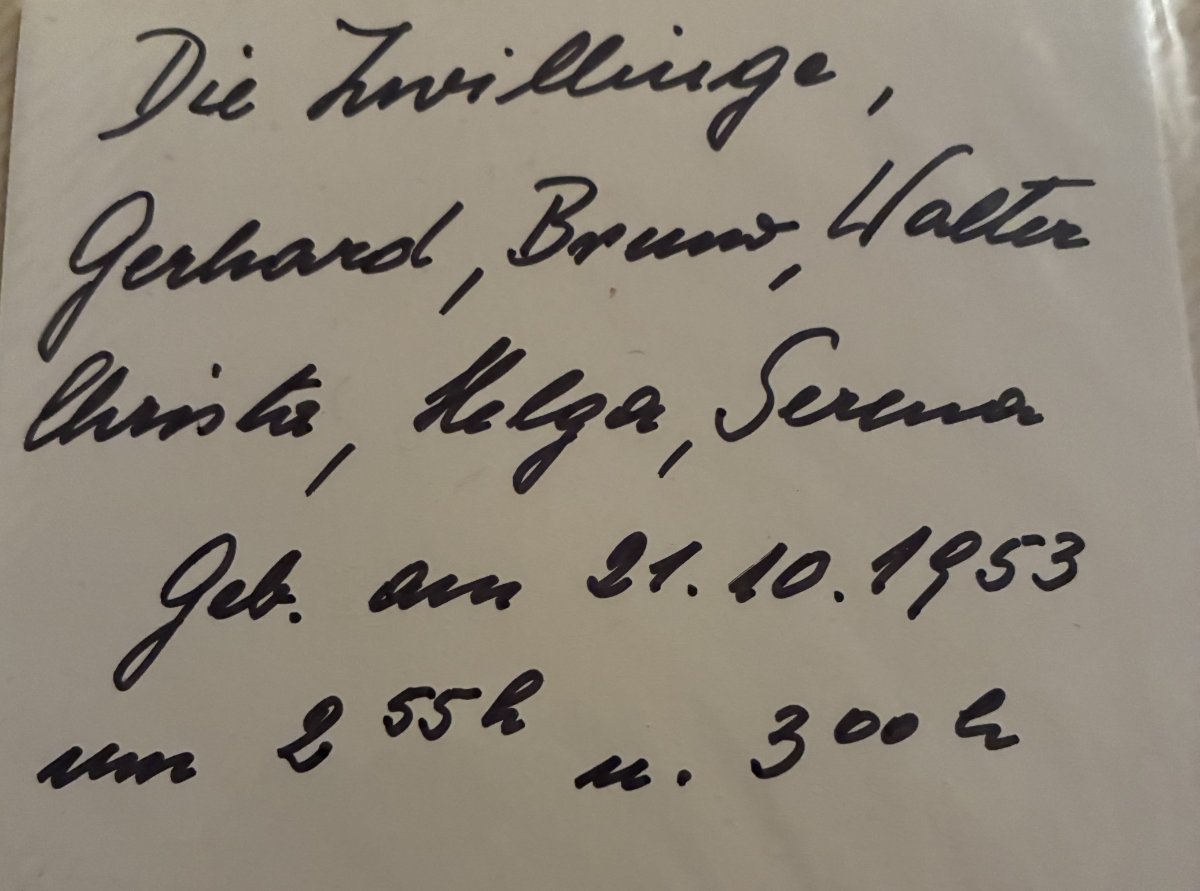 Die Zwillinge,
Gerhard, Bruno, Walter
Christa, Helga, Serena
Geb. am 21.10.1953
um 2 55 h u. 3 00 h